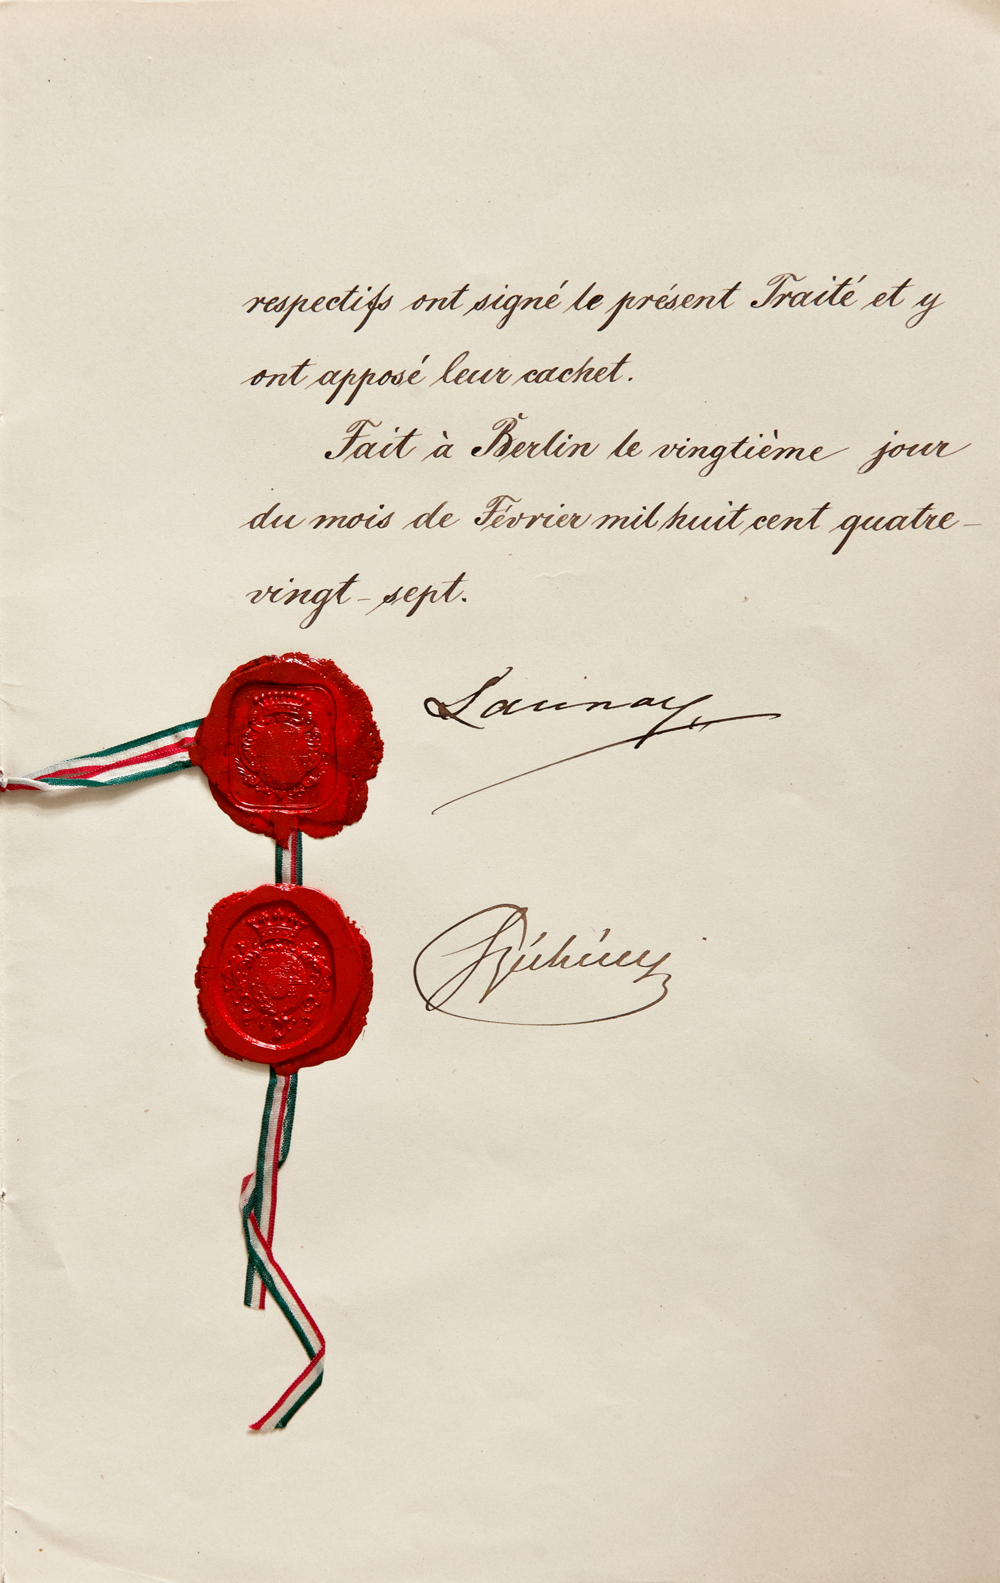 respectifs ont signé le présent Traité et y
ont apposé leur cachet.
Fait à Berlin le vingtième jour
du mois de Février mil huit cent quatre-
vingt-sept.
Launay
Széchényi